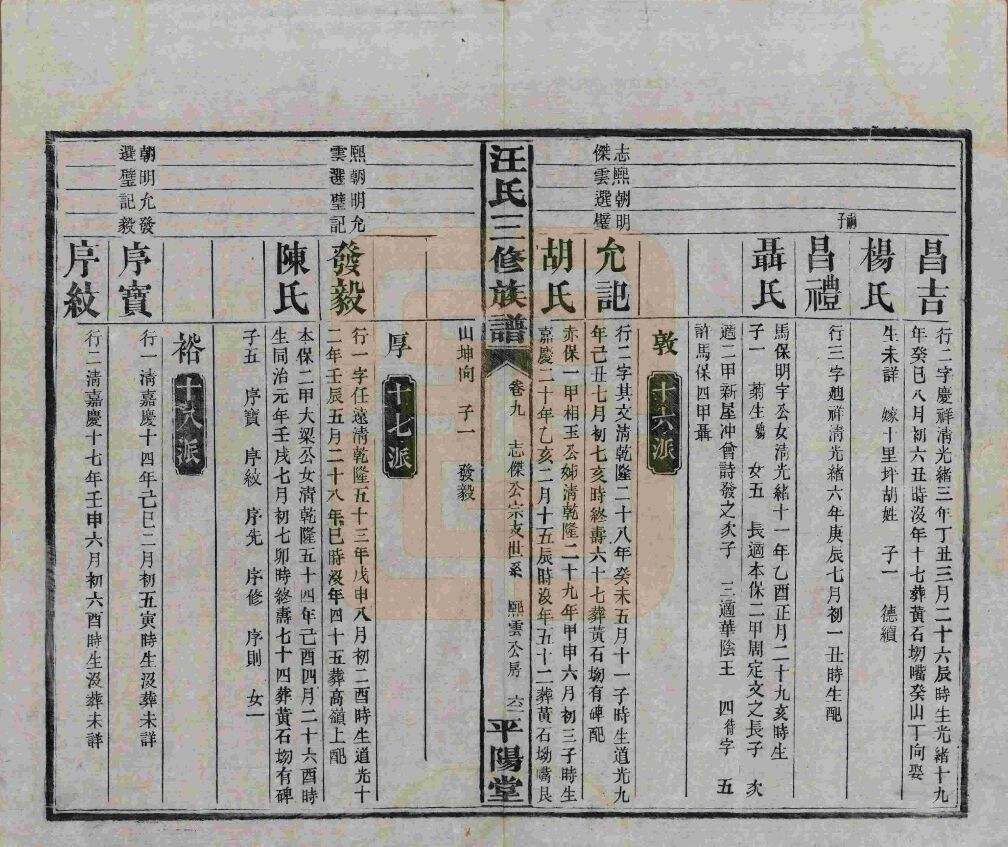 昌吉
行二字慶祥清光緒三年丁丑三月二十六辰時生光緒十九
年癸巳八月初六丑時沒年十七葬黃石坳嘴癸山丁向娶
楊氏
生未詳 嫁十里坪胡姓 子一 德續
昌禮
行三字廼祥清光緒六年庚辰七月初一丑時生配
聶氏
馬保明字公女清光緒十一年乙酉正月二十九亥時生
子一 菊生 女五 長適本保二甲周定文之長子 次
適二甲新屋冲曾詩發之次子 三適華陰王 四待字 五
許馬保四甲聶
志熙朝明
傑雲選璧
敦
十六派
允記
行二字其文清乾隆二十八年癸未五月十一子時生道光九
年己丑七月初七亥時終壽六十七葬黃石坳有碑配
胡氏
赤保一甲相玉公姊清乾隆二十九年甲申六月初三子時生
嘉慶二十年乙亥二月十五辰時沒年五十二葬黃石坳嘴艮
汪氏三修族譜
卷九 志傑公宗支世系 熙雲公房
平陽堂
山坤向 子一 發毅
熙朝明允
雲選璧記
厚
十七派
發毅
行一字任遠清乾隆五十三年戊申八月初二酉時生道光十
二年壬辰五月二十八年巳時沒年四十五葬高嶺上配
陳氏
本保二甲大梁公女清乾隆五十四年己酉四月二十六酉時
生同治元年壬戌七月初七卯時終壽七十四葬黃石坳有碑
子五 序寶 序紋 序先 序修 序則 女一
朝明允發
選璧記毅
裕
十八派
序寶
行一清嘉慶十四年己巳二月初五寅時生沒葬未詳
序紋
行二清嘉慶十七年壬申六月初六酉時生沒葬未詳